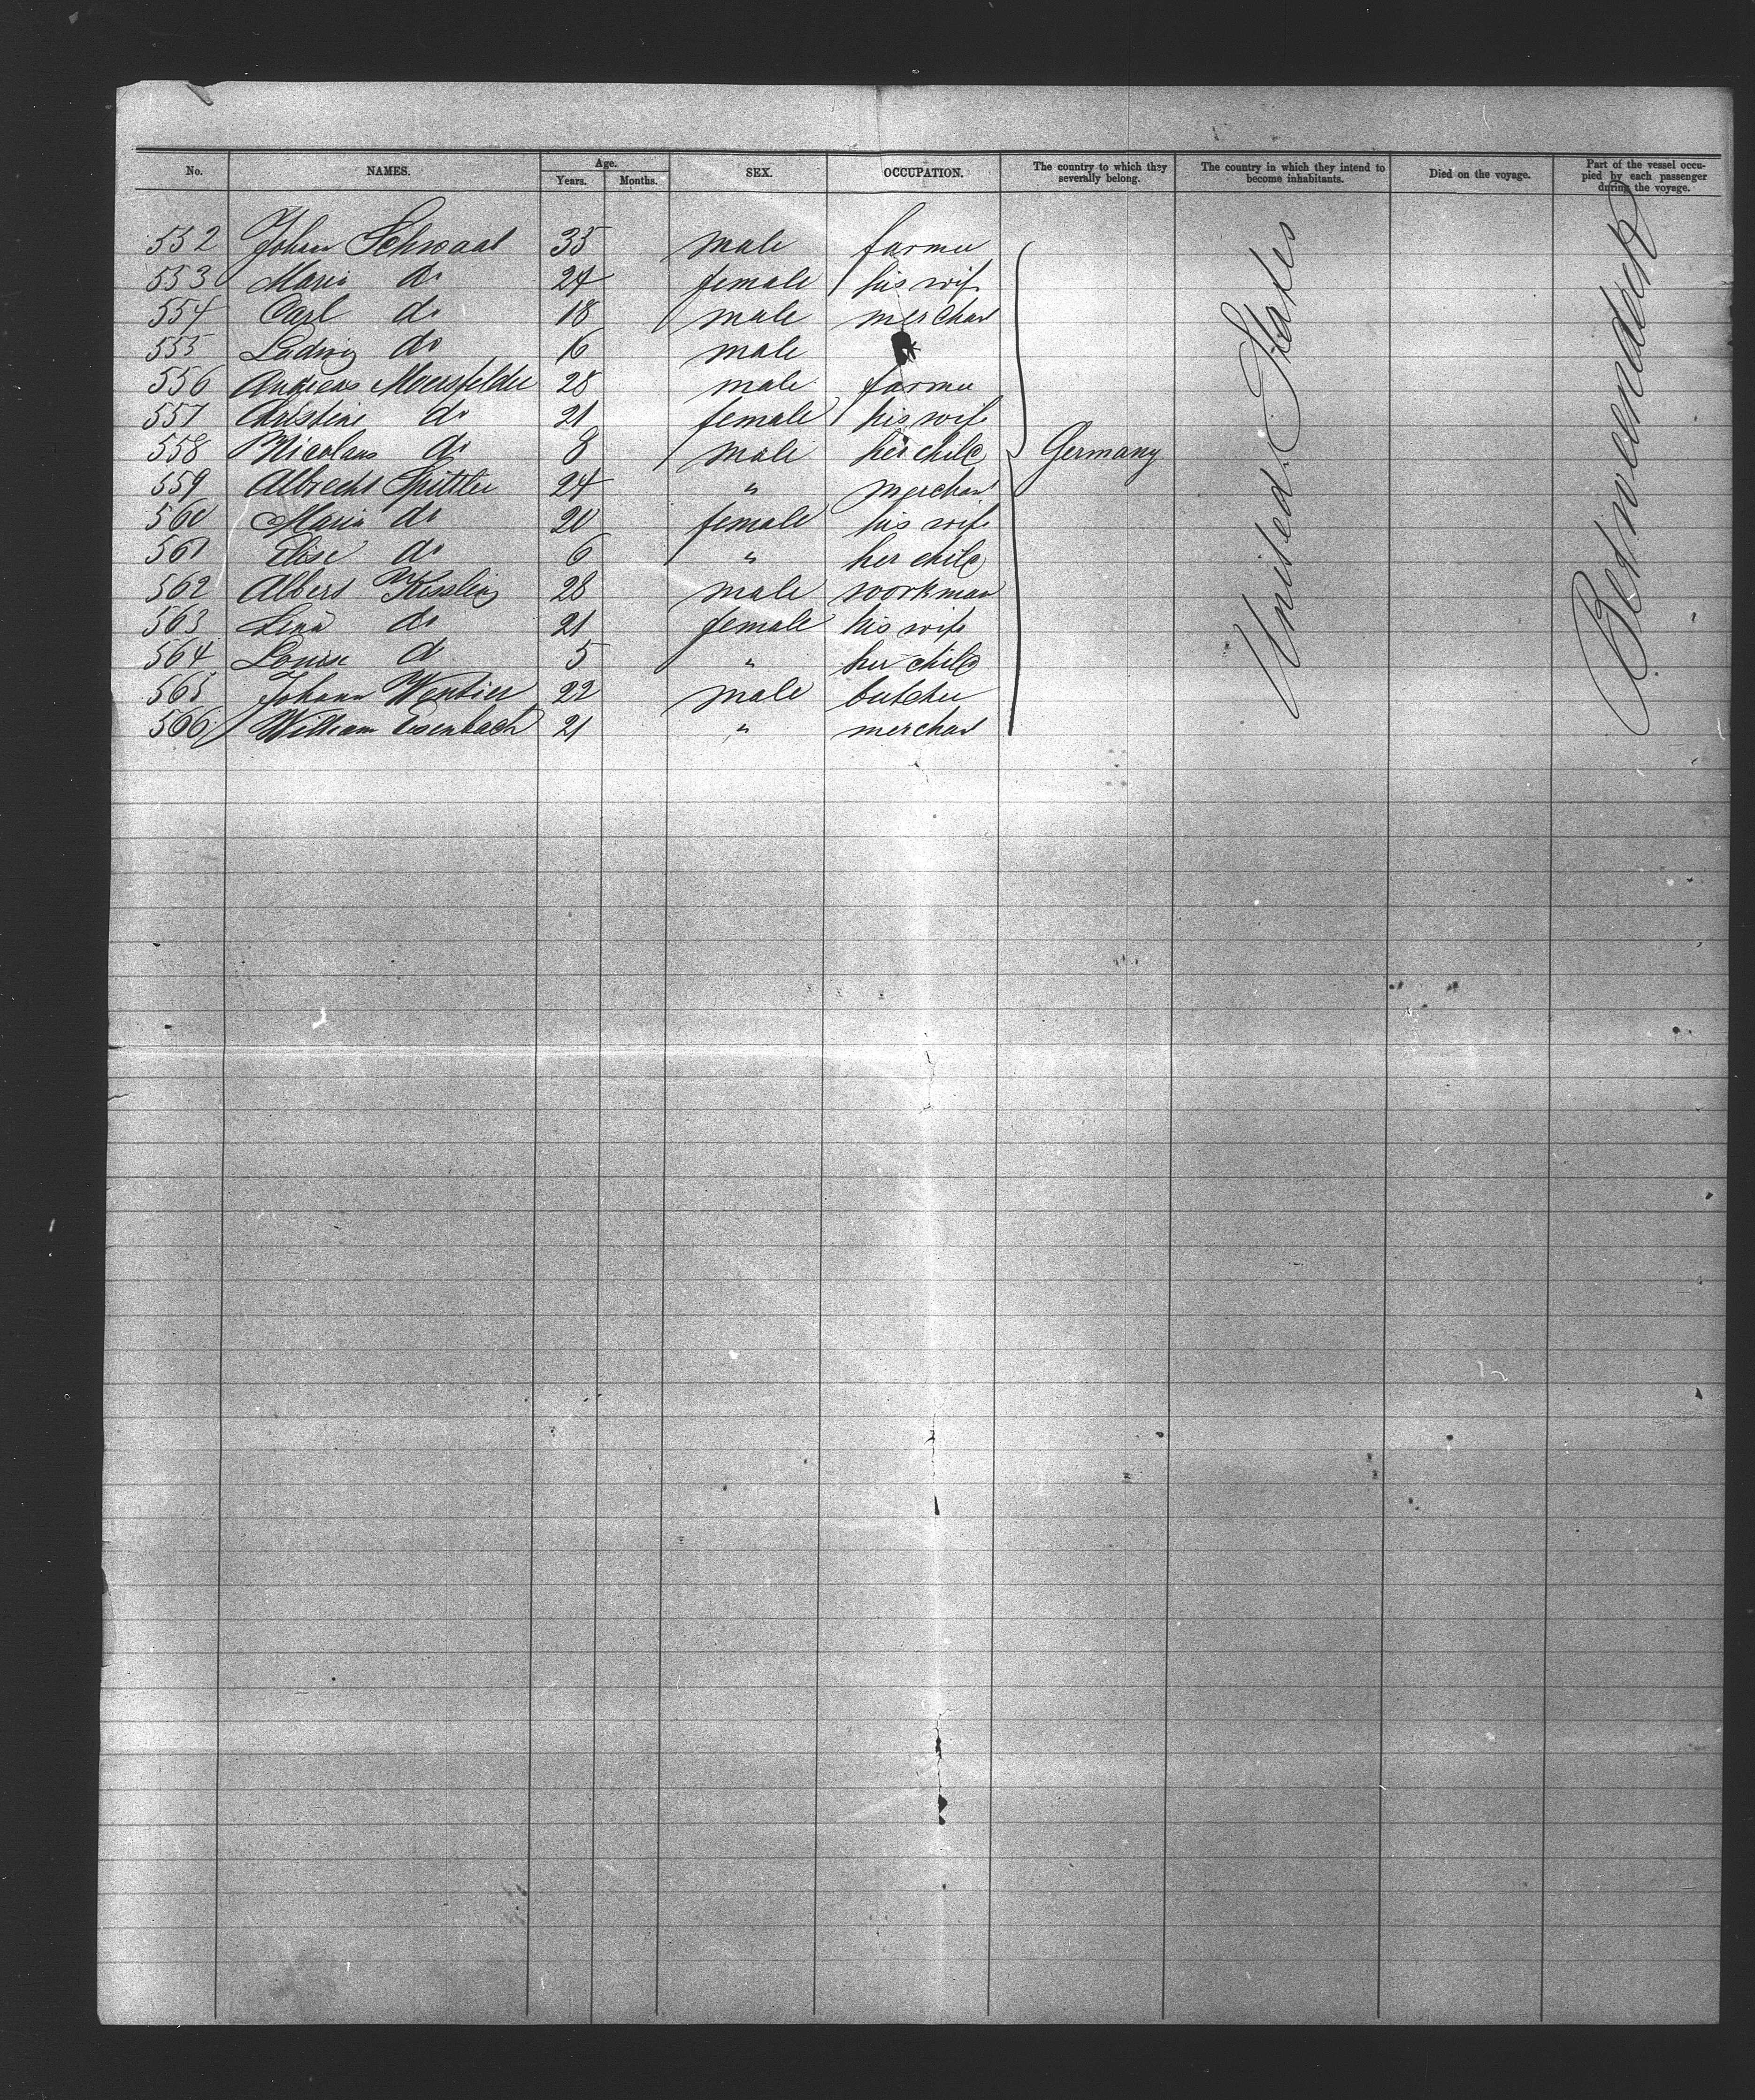 No. NAMES. Age. Years. Months. SEX. OCCUPATION. The country to which they severally belong. The country in which they intend to become inhabitants. Died on the voyage. Part of the vessel occupied by each passenger during the voyage.
552 Johan Schwaab 35 male farmer
553 Maria do 24 female his wife
554 Carl do 18 male merchant
555 Ludwig do 16 male
556 Andreas Moersfelder 28 male farmer
557 Christine do 21 female his wife
558 Nicolaus do 8 male her child Germany
559 Albrecht Spittler 24 " merchant
560 Maria do 20 female his wife
561 Elise do 6 " her child
562 Albert Kissling 28 male workman
563 Lena do 21 female his wife
564 Louise do 5 " her child
565 Johann 22 male butcher
566 William Eisenbach 21 " merchant
United States
Betweendeck